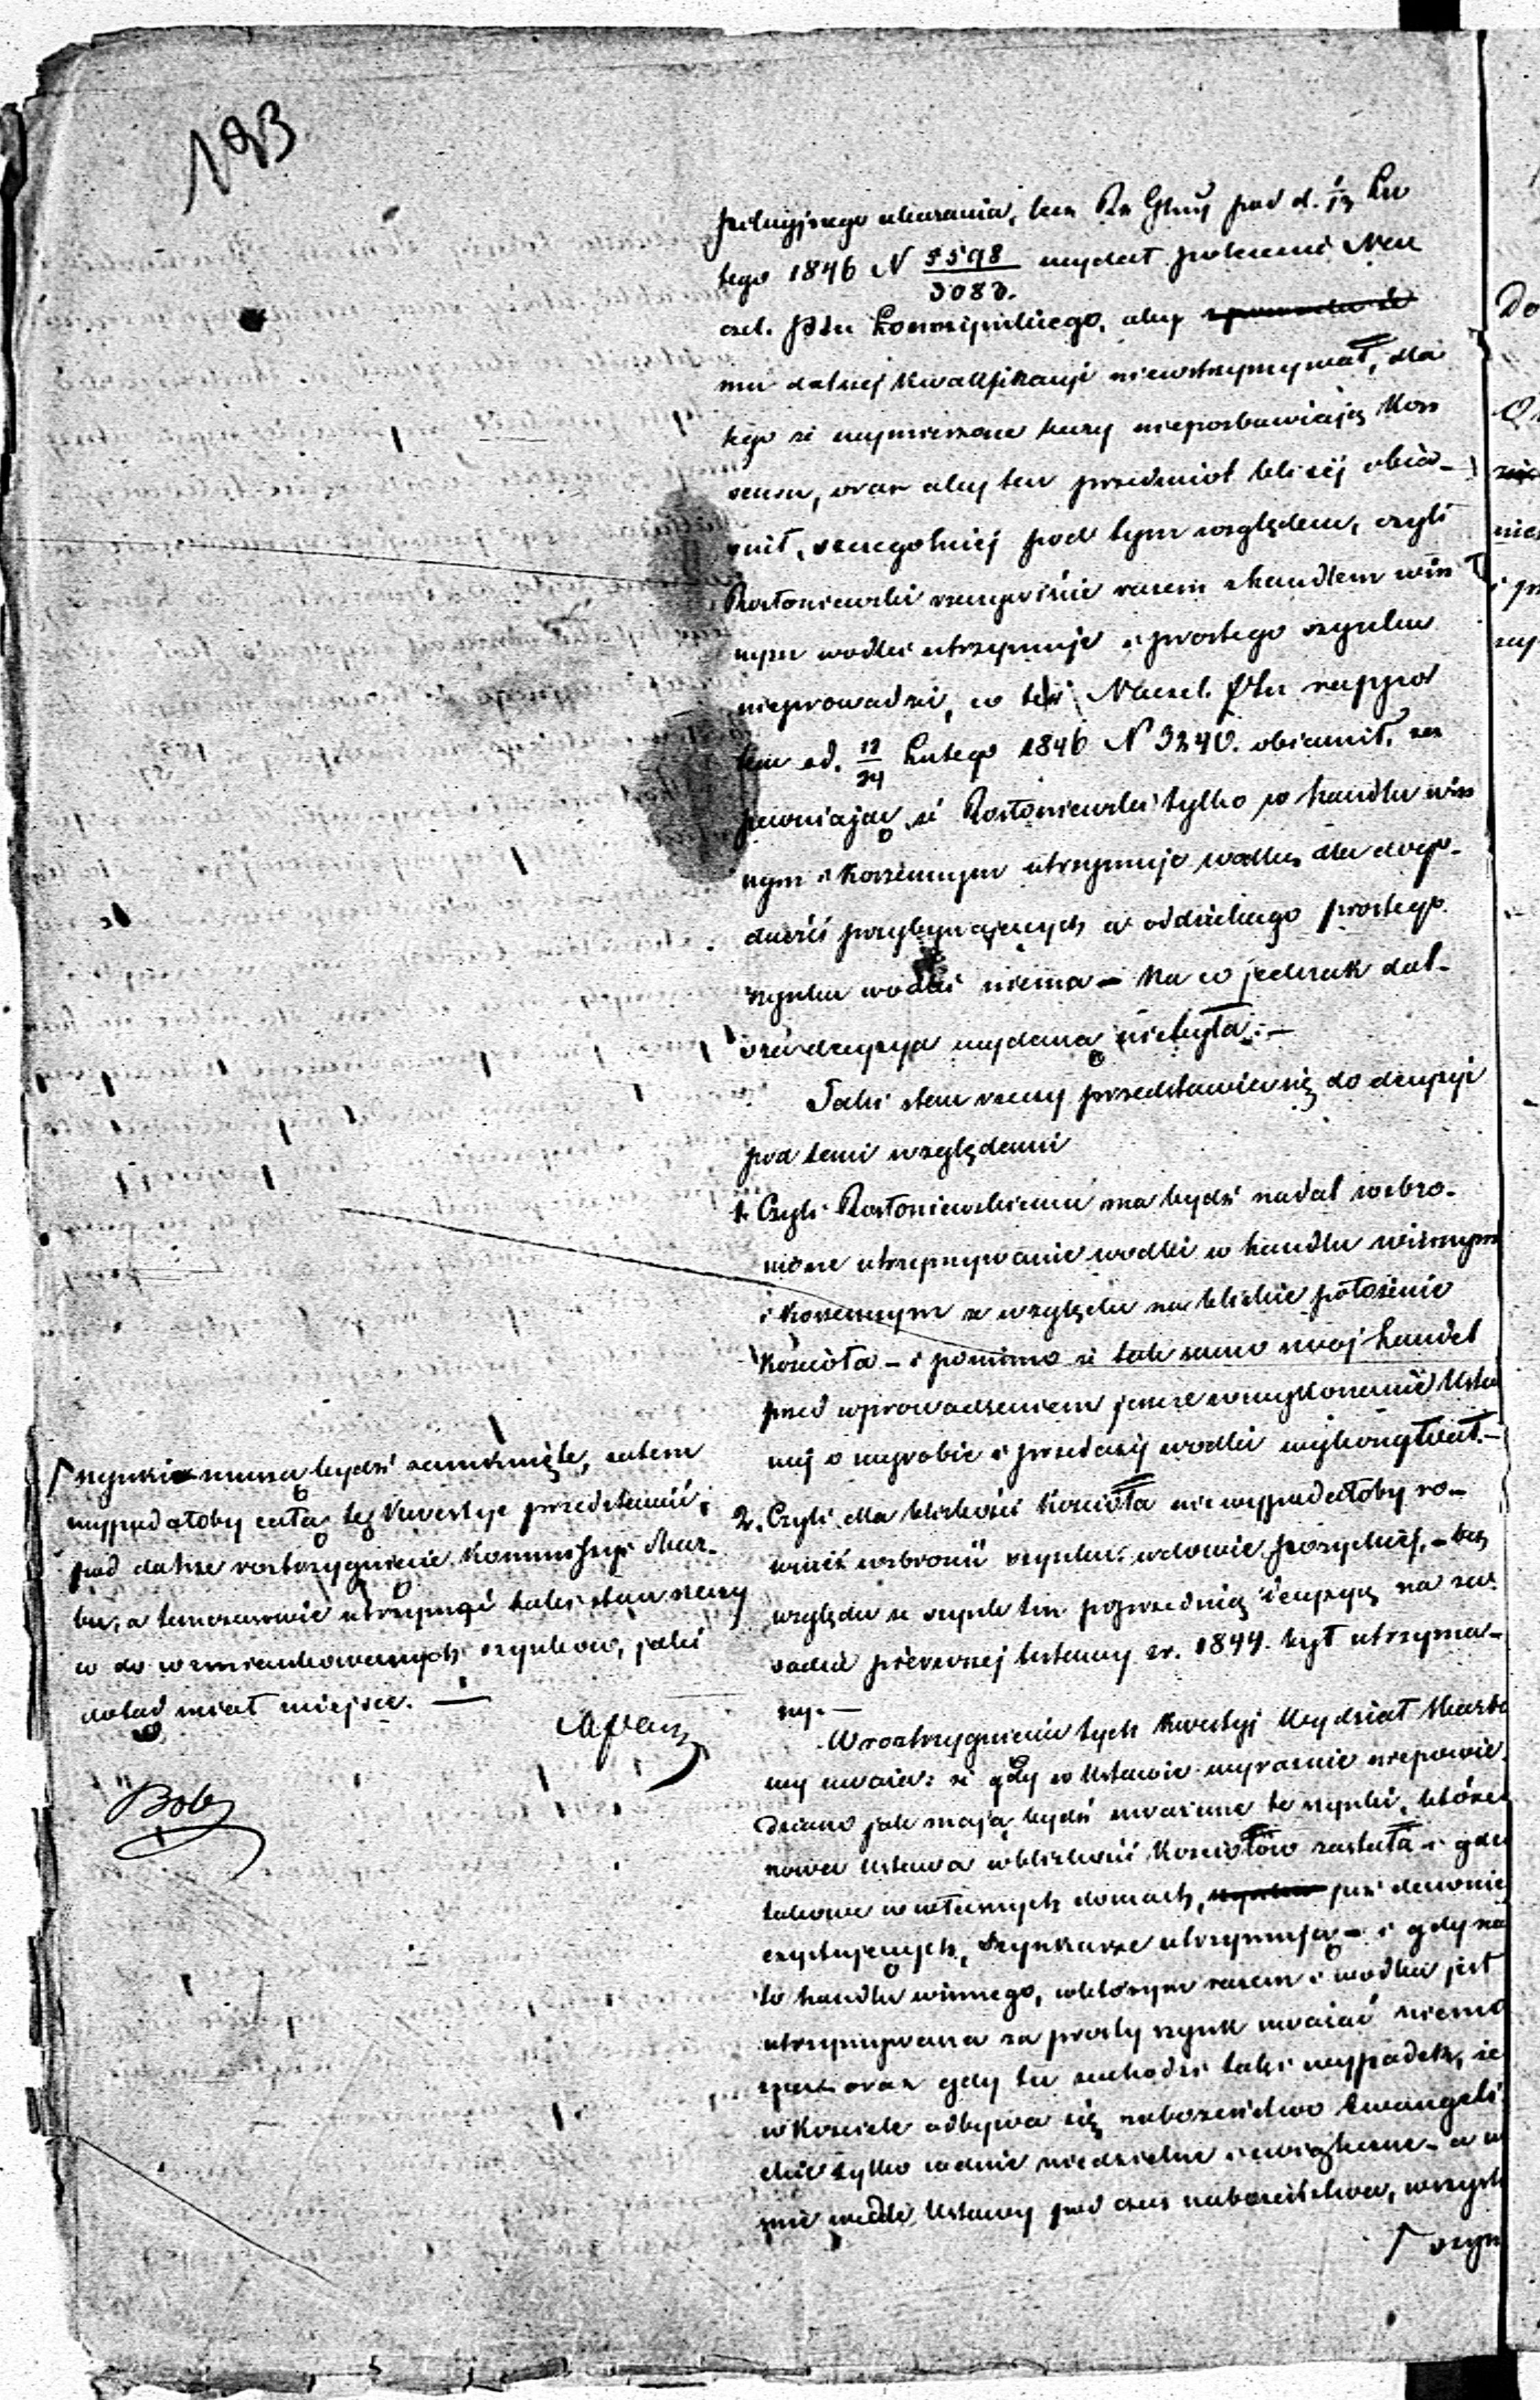 193
policyjnego ukarania, lecz Rz Głny pod d. 1/13 Lu
tego 1846 N 5598/3083. wydał polecenie Na
czel. Ptu aby
mu dalszej kwalifikacyi niewstrzymywał, dla
tego że wymierzone kary niepozbawiają Kon
sensu, oraz aby ten przedmiot bliżej obja-
śnił, szczególniej pod tym względem, czyli
Rostoniewski rzeczywiście razem z handlem win
nym wódki utrzymuje i prostego szynku
nieprowadzi, co też Naczel. Ptu rappor
tem z d. 12/24 Lutego 1846 N 3240. objaśnił, za
pewniając że Rostoniewski tylko w handlu win
nym i korzennym utrzymuje wódkę dla dogo-
dności przybywających a oddzielnego prostego
szynku wódki niema — Na co jednak dal-
sza decyzya wydaną niebyła. —
Taki stan rzeczy przedstawia się do decyzyi
pod temi względami
1. Czyli Rostoniewskiemu ma bydź nadal wzbro-
nione utrzymywanie wódki w handlu winnym
i korzennym ze względu na bliskie położenie
Kościoła — i pomimo że tak samo swój handel
przed wprowadzeniem jeszcze w wykonanie Usta
wy o wyrobie i przedaży wódki wykonywał. —
2. Czyli dla bliskości Kościoła nie wypadałoby ró-
wnież wzbronić szynku wdowie — bez
względu że szynk ten poprzednią decyzyą na za-
sadzie pierwszej Ustawy z r. 1844. był utrzyma-
ny. —
W rozstrzygnieniu tych kwestyi Wydział Skarbo
wy uważa: że gdy w Ustawie wyraźnie niepowie
dziano jak mają bydź uważane te szynki, które
nowa Ustawa w bliskości Kościołów zastała i gdy
takowe w własnych domach, już dawniej
exystujących, Szynkarze utrzymują — i gdy za
to handlu winnego, w którym razem i wódka jest
utrzymywana za prosty szynk uważać niemo
żna oraz gdy tu zachodzi taki wypadek, że
w Kościele odbywa się nabożeństwo Ewangeli
ckie tylko w dnie niedzielne i świąteczne — a w
myśl Ustawy pod czas nabożeństwa, wszyst
Γ szyn
Γ szynki muszą bydź zamknięte, zatem
wypadałoby całą tę kwestyę przedstawić
pod dalsze rozstrzygnienie Kommissyi Skar-
bu, a tymczasowie utrzymać taki stan rzeczy
co do wzmiankowanych szynków, jaki
dotąd miał miejsce. —